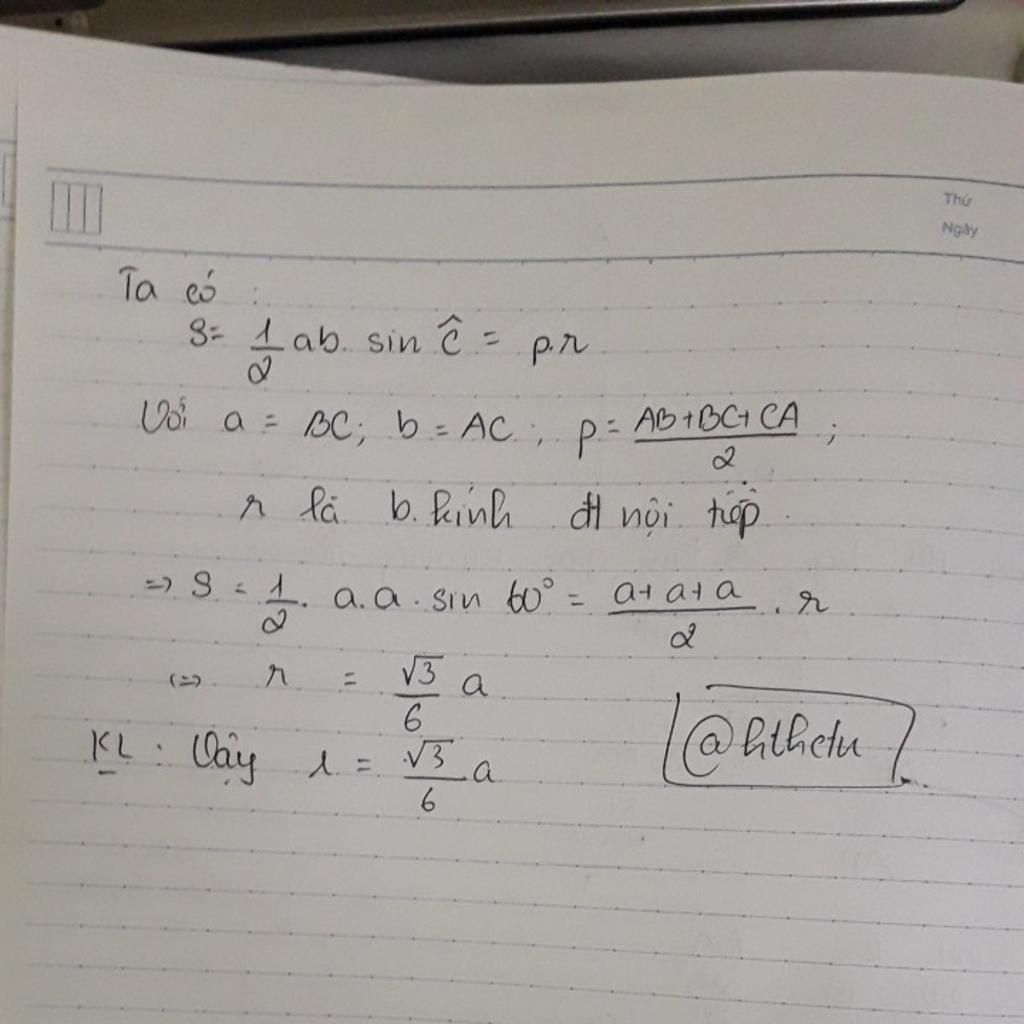 Thứ
Ngày
Ta có :
S = 1/2 ab. sin Ĉ = p.r
Với a = BC; b = AC; p = (AB+BC+CA)/2 ;
r là b.kính đt nội tiếp.
=> S = 1/2 . a.a . sin 60° = (a+a+a)/2 . r
<=> r = √3/6 a
KL : Vậy r = √3/6 a
@hthctu